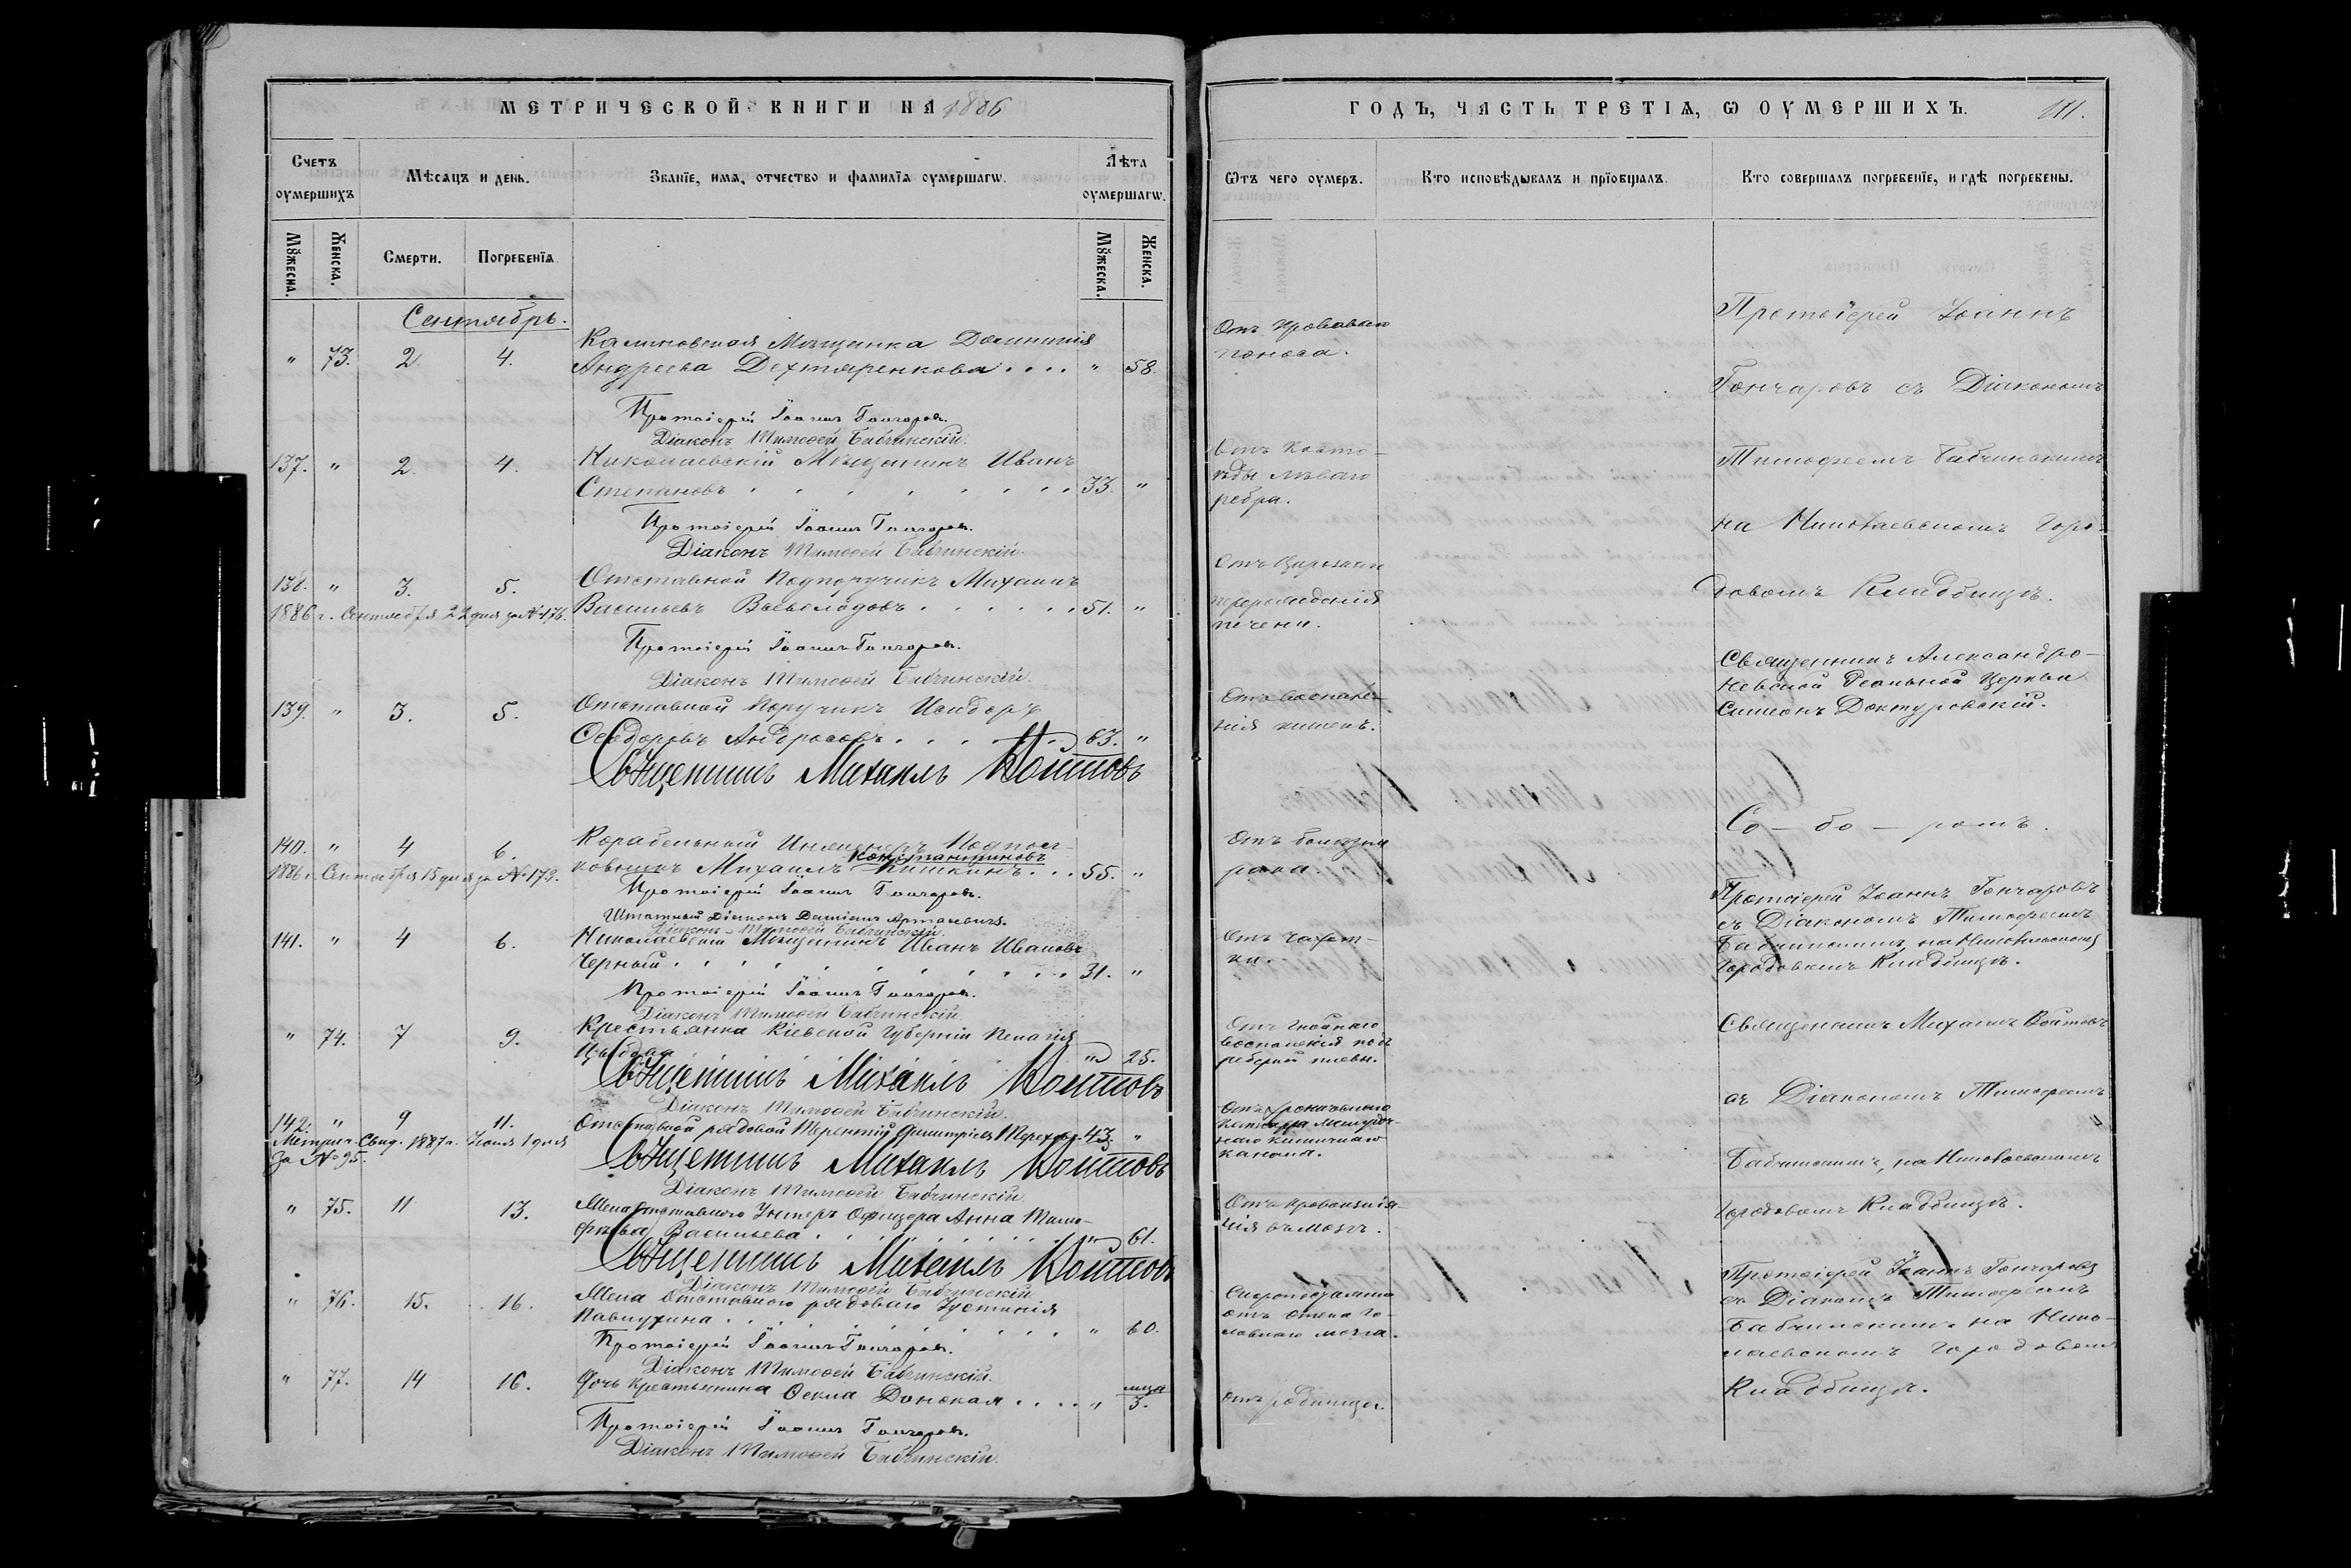 МЕТРИЧЕСКОЙ КНИГИ НА 1886
Счетъ оумершихъ
Мѣсяцъ и день.
Званїе, имѧ, отчество и фамилїѧ оумершагѡ.
Лѣта оумершагѡ.
Мꙋжеска.
Женска.
Смерти.
Погребенїѧ
Мꙋжеска.
Женска.
Сентябрь.
Мѣщанка Домникія
" 73. 2. 4. Андреева Дехтяренкова . . . . " 58.
Протоіерей Іоаннъ Гончаровъ.
Діаконъ Тимоѳей Бабчинскій.
137. " 2. 4. Николаевскій Мѣщанинъ Иванъ
Степановъ . . . . . . . . 33. "
Протоіерей Іоаннъ Гончаровъ.
Діаконъ Тимоѳей Бабчинскій.
138. " 3. 5. Отставной Подпоручикъ Михаилъ
1886 г. Сентября 22 дня за № 176. Васильевъ Всеволодовъ . . . . . . 51. "
Протоіерей Іоаннъ Гончаровъ.
Діаконъ Тимоѳей Бабчинскій.
139. " 3. 5. Отставной Поручикъ Исидоръ
Ѳеодоровъ Андросовъ . . . . . 63. "
Священникъ Михаилъ Войтовъ
140. " 4 6. Корабельный Инженеръ Подпол-
Константиновъ
1886 г. Сентября 15 дня за № 172. ковникъ Михаилъ Пишкинъ . . . 55. "
Протоіерей Іоаннъ Гончаровъ.
Штатный Діаконъ Даміанъ
Діаконъ Тимоѳей Бабчинскій.
141. " 4 6. Николаевскій Мѣщанинъ Иванъ Ивановъ
Черный . . . . . . . . . . . 31. "
Протоіерей Іоаннъ Гончаровъ.
Діаконъ Тимоѳей Бабчинскій.
" 74. 7 9. Крестьянка Кіевской Губерніи Пелагія
" 25.
Священникъ Михаилъ Войтовъ
Діаконъ Тимоѳей Бабчинскій.
142. " 9 11. Отставной рядовой Терентій Димитріевъ 43. "
Метрич. Свид. 1887 г. Іюля 1 дня
за № 95.
Священникъ Михаилъ Войтовъ
Діаконъ Тимоѳей Бабчинскій
" 75. 11 13. Жена отставного Унтеръ Офицера Анна Тимо-
фѣева Васильева . . . . . . . . . " 61.
Священникъ Михаилъ Войтовъ
Діаконъ Тимоѳей Бабчинскій
" 76. 15. 16. Жена Отставного рядоваго Устинія
. . . . . . . . . . . " 60.
Протоіерей Іоаннъ Гончаровъ.
Діаконъ Тимоѳей Бабчинскій.
" 77. 14 16. Дочь Крестьянина Ѳекла Донская . . . . " мца 3.
Протоіерей Іоаннъ Гончаровъ.
Діаконъ Тимоѳей Бабчинскій.
ГОДЪ, ЧАСТЬ ТРЕТІѦ, Ѡ ОУМЕРШИХЪ.
111.
Ѿтъ чего оумеръ.
Кто исповѣдывалъ и прїобщалъ.
Кто совершалъ погребенїе, и гдѣ погребены.
Отъ кроваваго
поноса.
Отъ Косто-
ѣды лѣваго
ребра.
перерожденія
печени.
Отъ воспале-
нія кишекъ.
Отъ болѣзни
рака.
Отъ чахот-
ки.
Отъ гнойнаго
воспаленія под-
реберной плевы.
Отъ хроническаго
катарра желудоч-
наго кишечнаго
канала.
Отъ кровоизлія-
нія въ мозгъ.
Скоропостижно
отъ отека го-
ловнаго мозга.
Отъ родимца.
Протоіерей Іоаннъ
Гончаровъ съ Діакономъ
Тимофеемъ Бабчинскимъ
на Николаевскомъ Горо-
довомъ Кладбищѣ.
Священникъ Александро-
Невской Церкви
Симеонъ Доктуровскій.
Со – бо – ромъ.
Протоіерей Іоаннъ Гончаровъ
съ Діакономъ Тимофеемъ
Бабчинскимъ, на Николаевскомъ
Городовомъ Кладбищѣ.
Священникъ Михаилъ Войтовъ
съ Діакономъ Тимофеемъ
Бабчинскимъ, на Николаевскомъ
Городовомъ Кладбищѣ.
Протоіерей Іоаннъ Гончаровъ
съ Діакономъ Тимофеемъ
Бабчинскимъ на Нико-
лаевскомъ Городовомъ
Кладбищѣ.